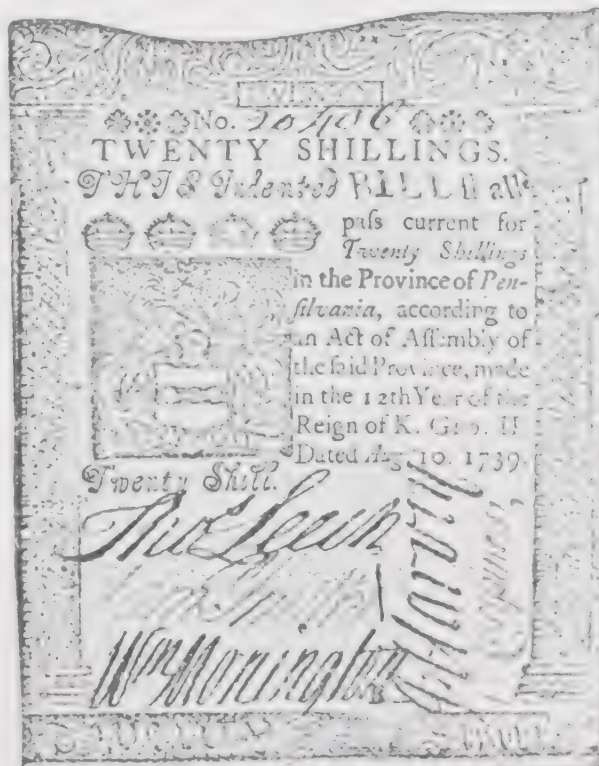 No.
TWENTY SHILLINGS.
THIS Indented BILL shall
paſs current for
Twenty Shillings
in the Province of Pen-
ſilvania, according to
an Act of Aſſembly of
the ſaid Province, made
in the 12th Year of the
Reign of K. Geo. II
Dated Aug. 10. 1739.
Twenty Shill.
Thos Leech
Wm Monington